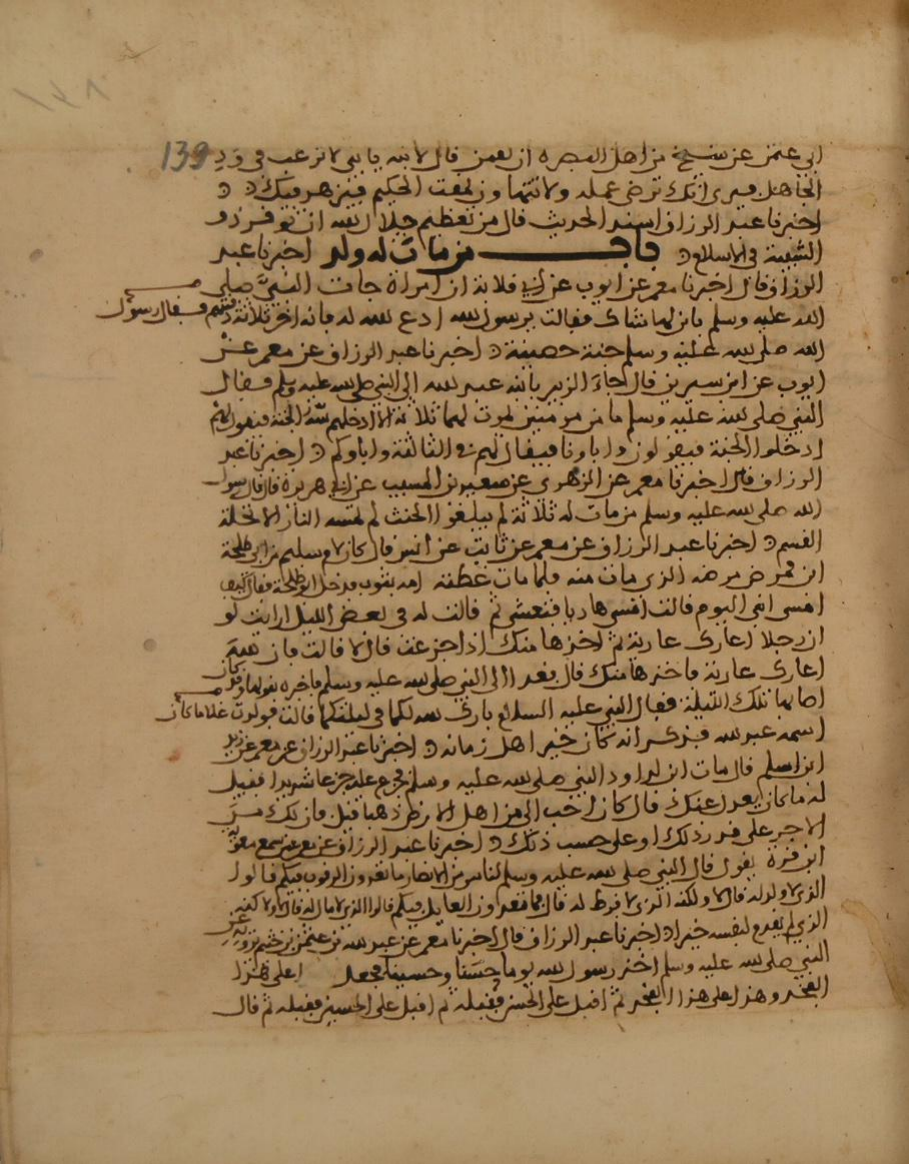 139
ابي عثمن عن شيخ من اهل البصره ان لقمن قال لابنه يا بني لا ترغب في ود
الجاهل فيرى انك ترضى عمله ولا تتهاون بمقت الحكيم فيزهد فيك
اخبرنا عبد الرزاق اسند الحديث قال من تعظيم جلال الله ان يوقر ذو
الشيبة في الاسلام باب من مات له ولد اخبرنا عبد
الرزاق قال اخبرنا معمر عن ايوب عن ابي قلابة ان امراة جات النبي صلى
الله عليه وسلم بابن لها شاك فقالت يرسول الله ادع الله له فانه اخر ثلاثة دفنتهم فقال رسول
الله صلى الله عليه وسلم جنة حصينة اخبرنا عبد الرزاق عن معمر عن
ايوب عن ابن سيرين قال جاء الزبير بابنه عبد الله الى النبي صلى الله عليه وسلم فقال
النبي صلى الله عليه وسلم ما من مومنين يموت لهما ثلاثة الا ادخلهم الله الجنة فيقول لهم
ادخلوا الجنة فيقولون واباونا فيقال لهم في الثالثة واباوكم اخبرنا عبد
الرزاق قال اخبرنا معمر عن الزهري عن سعيد بن المسيب عن ابي هريرة قال قال رسول
الله صلى الله عليه وسلم من مات له ثلاثة لم يبلغوا الحنث لم تمسه النار الا تحلة
القسم اخبرنا عبد الرزاق عن معمر عن ثابت عن انس قال كان لام سليم من ابي طلحة
ابن فمرض مرضه الذي مات منه فلما مات غطته امه بثوب فدخل ابو طلحة فقال كيف
امسى ابني اليوم قالت امسى هاديا فتعشى ثم قالت له في بعض الليل ارايت لو
ان رجلا اعارك عارية ثم اخذها منك اذا جزعت قال لا قالت فان الله
اعارك عارية فاخذها منك قال فغدا الى النبي صلى الله عليه وسلم فاخبره بقولها وقد كان
اصابها تلك الليلة فقال النبي عليه السلام بارك الله لكما في ليلتكما قالت فولدت غلاما كان
اسمه عبد الله فذكر انه كان خير اهل زمانه اخبرنا عبد الرزاق عن معمر عن زيد
ابن اسلم قال مات ابن لداود النبي صلى الله عليه وسلم فجزع عليه جزعا شديدا فقيل
له ما كان يعدل عندك قال كان احب الي من اهل الارض ذهبا قيل فان لك من
الاجر على قدر ذلك او على حسب ذلك اخبرنا عبد الرزاق عن معمر عن من سمع معوية
ابن قرة يقول قال النبي صلى الله عليه وسلم لناس من الانصار ما تعدون الرقوب فيكم قالوا
الذي لا ولد له قال لا ولكنه الذي لا فرط له قال فما تعدون العايل فيكم قالوا الذي لا مال له قال لا ولكنه
الذي لم يقدم لنفسه خيرا اخبرنا عبد الرزاق قال اخبرنا معمر عن عبد الله بن عثمن بن خثيم
النبي صلى الله عليه وسلم اخذ رسول الله يوما حسنا وحسينا فجعل اعلى هذا
الفخذ وهذا على هذا الفخذ ثم اقبل على الحسن فقبله ثم اقبل على الحسين فقبله ثم قال